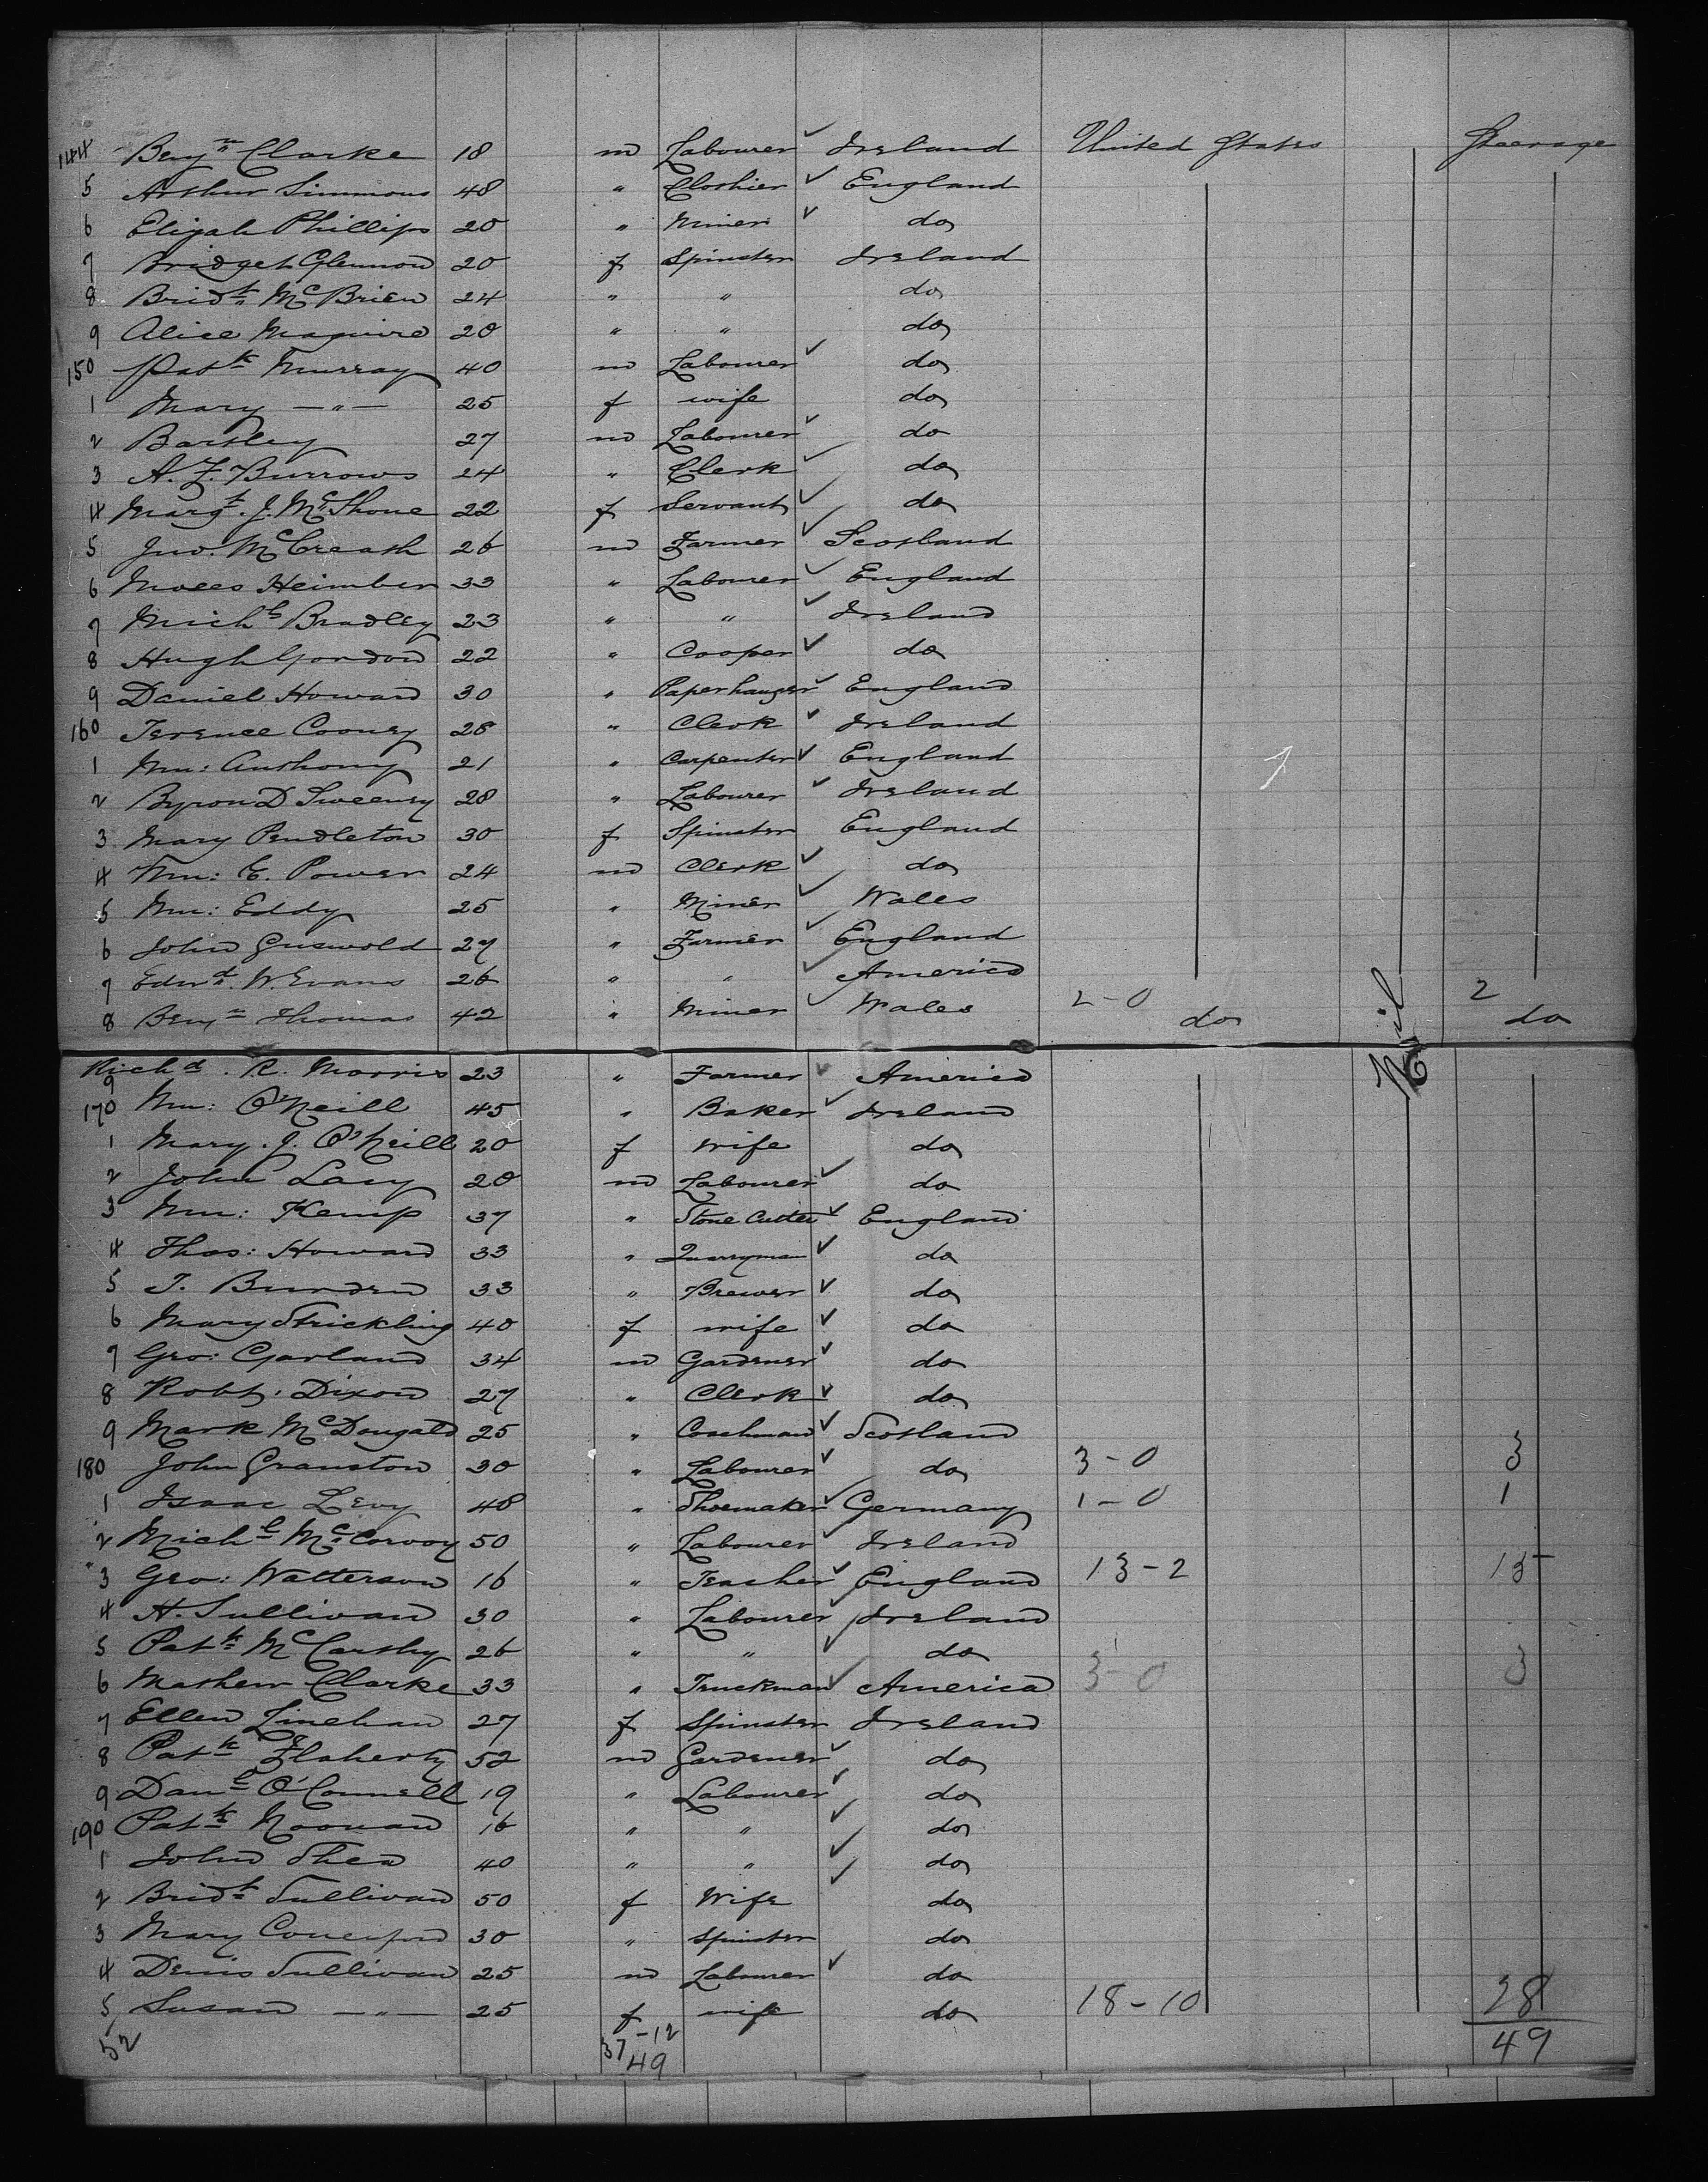 144 Benjn Clarke 18 m Labourer ✓ Ireland United States Steerage
5 Arthur Simmons 48 " Clothier ✓ England
6 Elijah Phillips 20 " Miner ✓ do
7 Bridget Glennon 20 f Spinster Ireland
8 Bridt McBrien 24 " " do
9 Alice Maguire 20 " " do
150 Patk Murray 40 m Labourer ✓ do
1 Mary — " — 25 f wife do
2 Bartley 27 m Labourer ✓ do
3 A. F. Burrows 24 " Clerk ✓ do
4 Margt. J. McShone 22 f Servant ✓ do
5 Jno. McCreath 26 m Farmer ✓ Scotland
6 Moses Heimber 33 " Labourer ✓ England
7 Michl Bradley 23 " " ✓ Ireland
8 Hugh Gordon 22 " Cooper ✓ do
9 Daniel Howard 30 " Paperhanger ✓ England
160 Terence Cooney 28 " Clerk ✓ Ireland
1 Wm: Anthony 21 " Carpenter ✓ England
2 Byron D Sweeney 28 " Labourer ✓ Ireland
3 Mary Pendleton 30 f Spinster England
4 Wm: E. Power 24 m Clerk ✓ do
5 Wm: Eddy 25 " Miner ✓ Wales
6 John Griswold 27 " Farmer ✓ England
7 Edwd. W. Evans 26 " " ✓ America
8 Benjn Thomas 42 " Miner ✓ Wales 2-0 do Nil 2 do
9 Richd. R. Morris 23 " Farmer ✓ America
170 Wm: O'Neill 45 " Baker ✓ Ireland
1 Mary. J. O'Neill 20 f Wife do
2 John Lacy 20 m Labourer ✓ do
3 Wm: Kemp 37 " Stone Cutter ✓ England
4 Thos: Howard 33 " Quarryman ✓ do
5 T. Burden 33 " Brewer ✓ do
6 Mary Strickling 40 f wife ✓ do
7 Geo: Garland 34 m Gardener ✓ do
8 Robt. Dixon 27 " Clerk ✓ do
9 Mark McDougald 25 " Coachman ✓ Scotland
180 John Granston 30 " Labourer ✓ do 3-0 3
1 Isaac Levy 48 " Shoemaker ✓ Germany 1-0 1
2 Michl McCorvoy 50 " Labourer ✓ Ireland
3 Geo: Watterson 16 " Teacher ✓ England 13-2 15
4 H. Sullivan 30 " Labourer ✓ Ireland
5 Patk McCarthy 26 " " ✓ do
6 Mathew Clarke 33 " Truckman ✓ America 3-0 3
7 Ellen Linehan 27 f Spinster Ireland
8 Patk Flaherty 52 m Gardener ✓ do
9 Danl O'Connell 19 " Labourer ✓ do
190 Patk Noonan 16 " " ✓ do
1 John Shea 40 " " ✓ do
2 Bridt Sullivan 50 f Wife ✓ do
3 Mary 30 " Spinster do
4 Denis Sullivan 25 m Labourer ✓ do
5 Susan — " — 25 f wife do 18-10 28
52 37-12 49
49